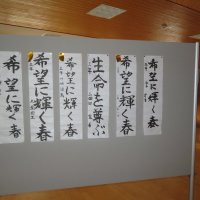 希望に輝く春
希望に輝く春
生命を尊ぶ
希望に輝く春
希望に輝く春
希望に輝く春